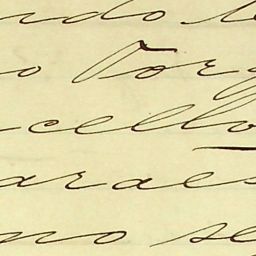 ndo
o Vor
cello
araes
mo se